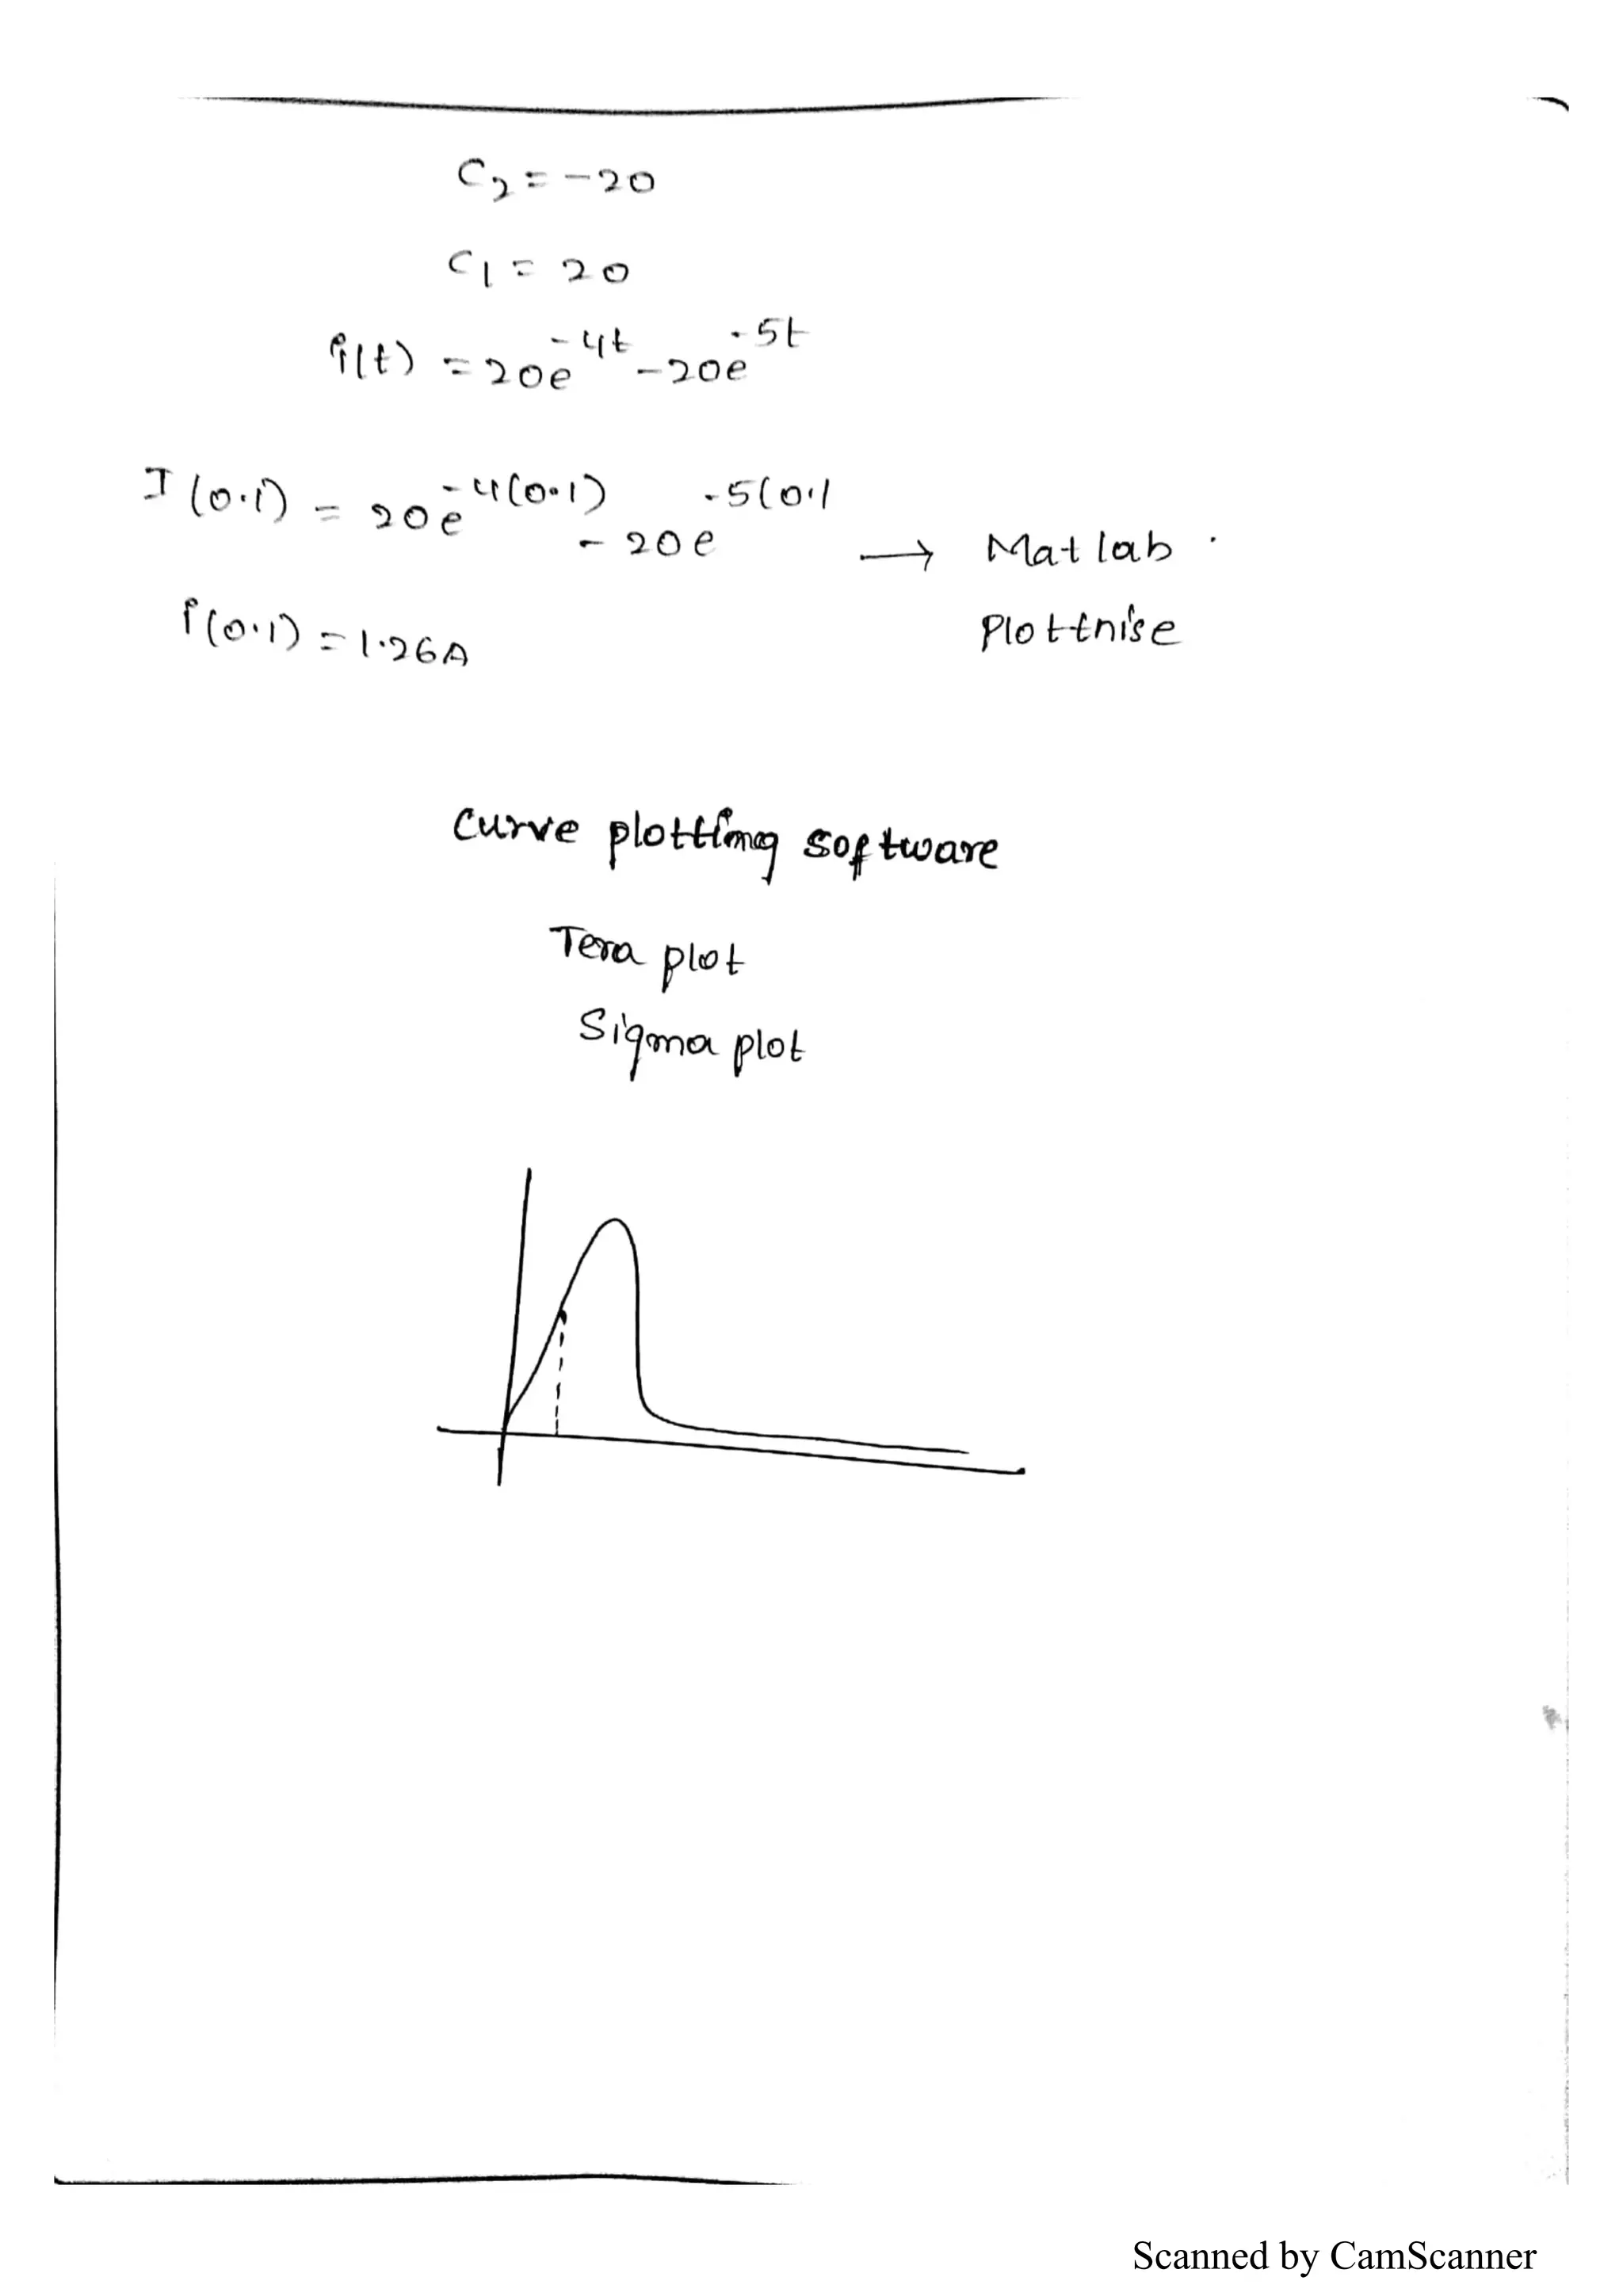 C₂ = -20
C₁ = 20
i(t) = 20e^-4t - 20e^-5t
I(0.1) = 20e^-4(0.1) - 20e^-5(0.1 → Matlab.
i(0.1) = 1.26A Plottnise
Curve plotting software
Tera plot
Sigma plot
Scanned by CamScanner